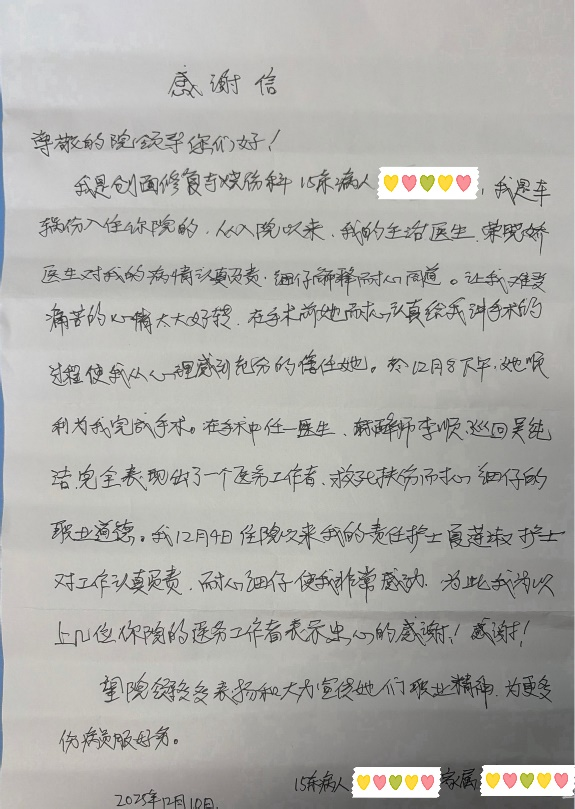 感谢信
尊敬的院领导你们好！
我是创面修复与烧伤科15床病人，我是车
祸伤入住你院的，从入院以来，我的主治医生，荣晓娇
医生对我的病情认真负责，细仔解释耐心问道。让我难受
痛苦的心情大大好转，在手术前她耐心认真给我讲手术的
过程使我从心理感到充份的信任她。於12月8下午，她顺
利为我完成手术。在手术中任一医生，麻醉师李顺，巡回吴纯
洁，完全表现出了一个医务工作者，救死扶伤耐心细仔的
职业道德。我12月4日住院以来我的责任护士夏莲淑护士
对工作认真负责，耐心细仔使我非常感动，为此我为以
上几位你院的医务工作者表示衷心的感谢！感谢！
望院领导多多表扬和大力宣传她们职业精神，为更多
伤病员服好务。
15床病人 家属
2025年12月10日.